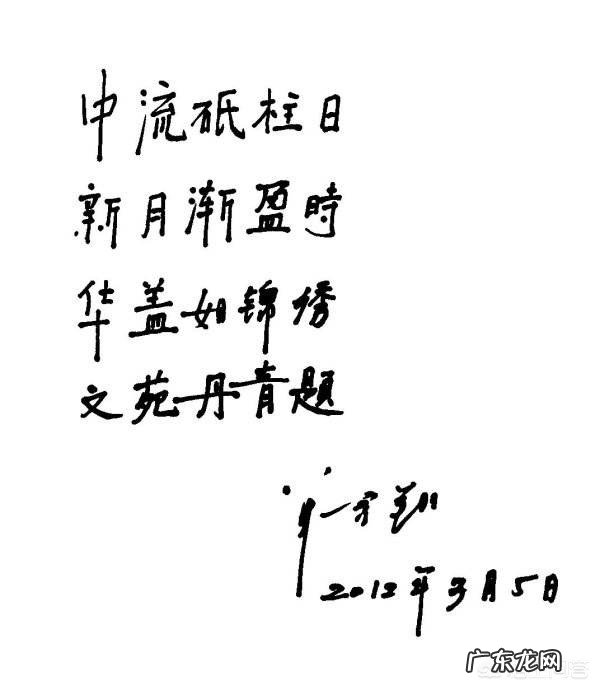 中流砥柱日
新月渐盈時
华盖如锦绣
文苑丹青題
2012年3月5日
广东龙网